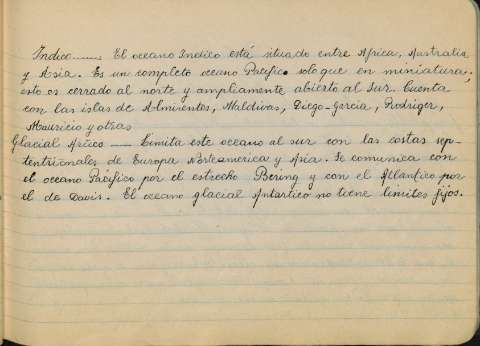 Indico....... El oceano Indico está situado entre Africa, Australia
y Asia. Es un completo oceano Pacífico solo que en miniatura,
esto es cerrado al norte y ampliamente abierto al Sur. Cuenta
con las islas de Almirentes, Maldivas, Diego-Garcia, Rodriger,
Mauricio y otras
Glacial Artico —— Limita este oceano al sur con las costas sep-
tentrionales de Europa Norteamerica y Asia. Se comunica con
el oceano Pacífico por el estrecho Bering y con el Atlantico por
el de Davis. El oceano glacial Antártico no tiene limites fijos.